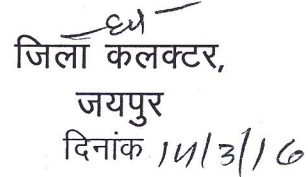 जिला कलक्टर,
जयपुर
दिनांक 14/3/16